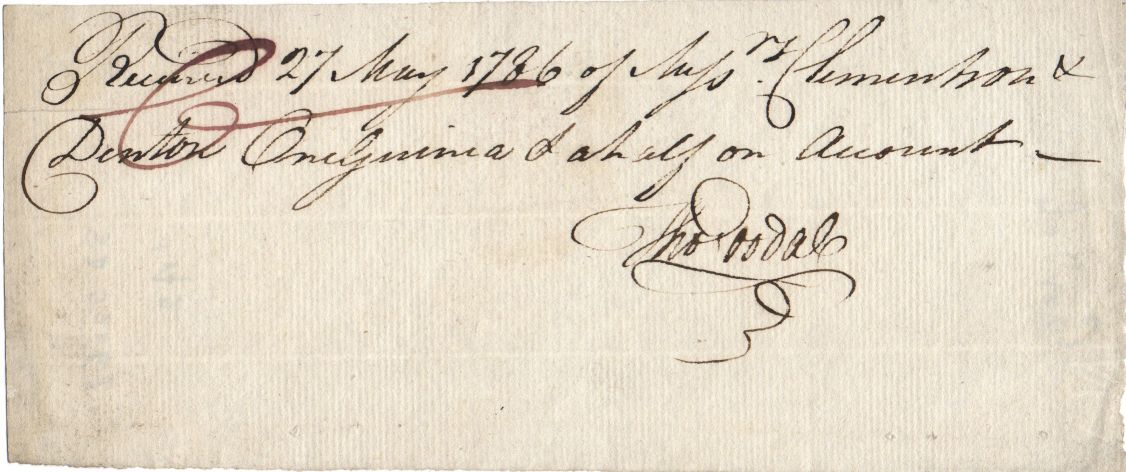 Received 27 May 1786 of Messrs. Clementson &
Denton One Guinea & a half on Account —
Tho